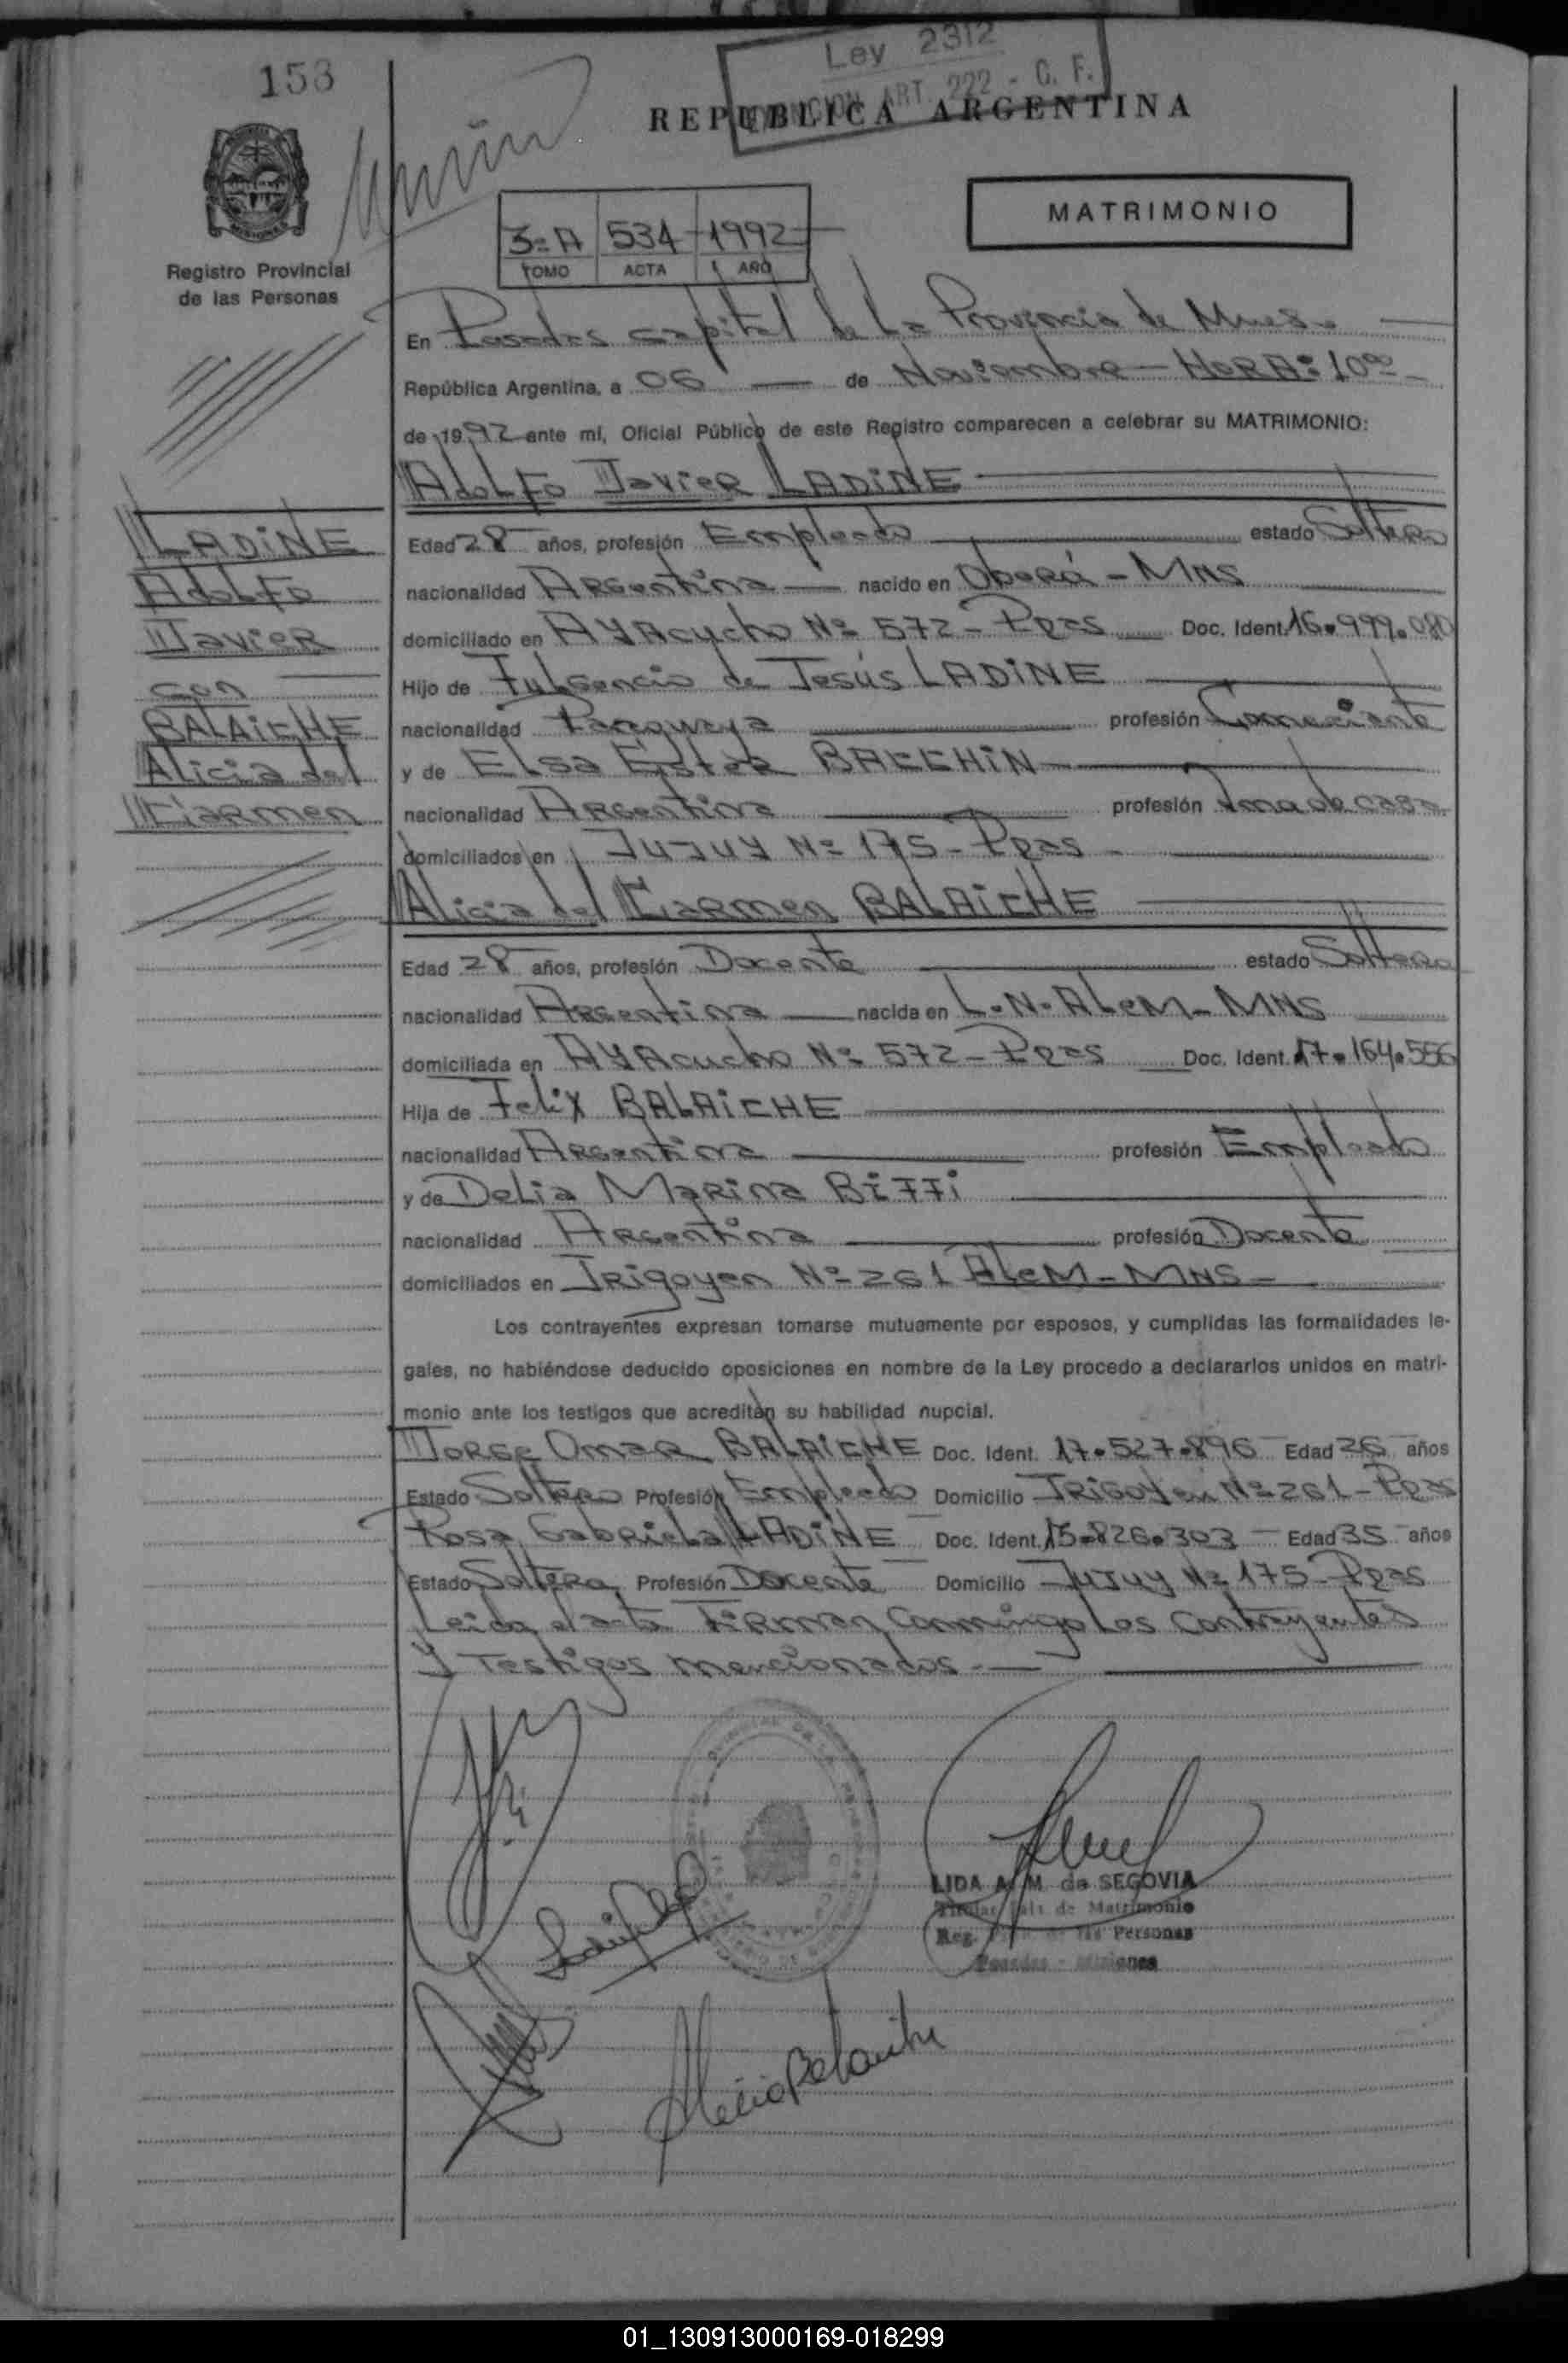 153
Ley 2312
ART. 222 - C. F.
REPUBLICA ARGENTINA
MATRIMONIO
3º A 534 1992
TOMO ACTA AÑO
Registro Provincial
de las Personas
En Posadas capital de La Provincia de Mnes.
República Argentina, a 06 de Noviembre - HORA: 10ºº
de 1992 ante mí, Oficial Público de este Registro comparecen a celebrar su MATRIMONIO:
Adolfo Javier LADINE
LADINE
Adolfo
Javier
con
BALAICHE
Alicia del
Carmen
Edad 28 años, profesión Empleado estado Soltero
nacionalidad Argentina nacido en Oberá - MNS
domiciliado en AYAcucho Nº 572 - Pdas Doc. Ident. 16.999.080
Hijo de Fulgencio de Jesús LADINE
nacionalidad Paraguaya profesión Comerciante
y de Elsa Ester BACCHIN
nacionalidad Argentina profesión Ama de casa
domiciliados en JUJUY Nº 175 - Pdas
Alicia del Carmen BALAICHE
Edad 28 años, profesión Docente estado Soltera
nacionalidad Argentina nacida en L.N. ALEM - MNS
domiciliada en AYAcucho Nº 572 - Pdas Doc. Ident. 17.164.556
Hija de Felix BALAICHE
nacionalidad Argentina profesión Empleado
y de Delia Marina
nacionalidad Argentina profesión Docente
domiciliados en Irigoyen Nº 261 ALEM - MNS
Los contrayentes expresan tomarse mutuamente por esposos, y cumplidas las formalidades le-
gales, no habiéndose deducido oposiciones en nombre de la Ley procedo a declararlos unidos en matri-
monio ante los testigos que acreditan su habilidad nupcial.
Jorge Omar BALAICHE Doc. Ident. 17.527.896 Edad 26 años
Estado Soltero Profesión Empleado Domicilio IRIGOYEN Nº 261 - Pdas
Rosa Gabriela LADINE Doc. Ident. 15.826.303 Edad 35 años
Estado Soltera Profesión Docente Domicilio JUJUY Nº 175 - Pdas
Leida el acta Firman Conmingo Los Contrayentes
Y Testigos mencionados.
LIDA A. M. de SEGOVIA
de Matrimonio
Reg. de las Personas
Posadas - Misiones
01_130913000169-018299